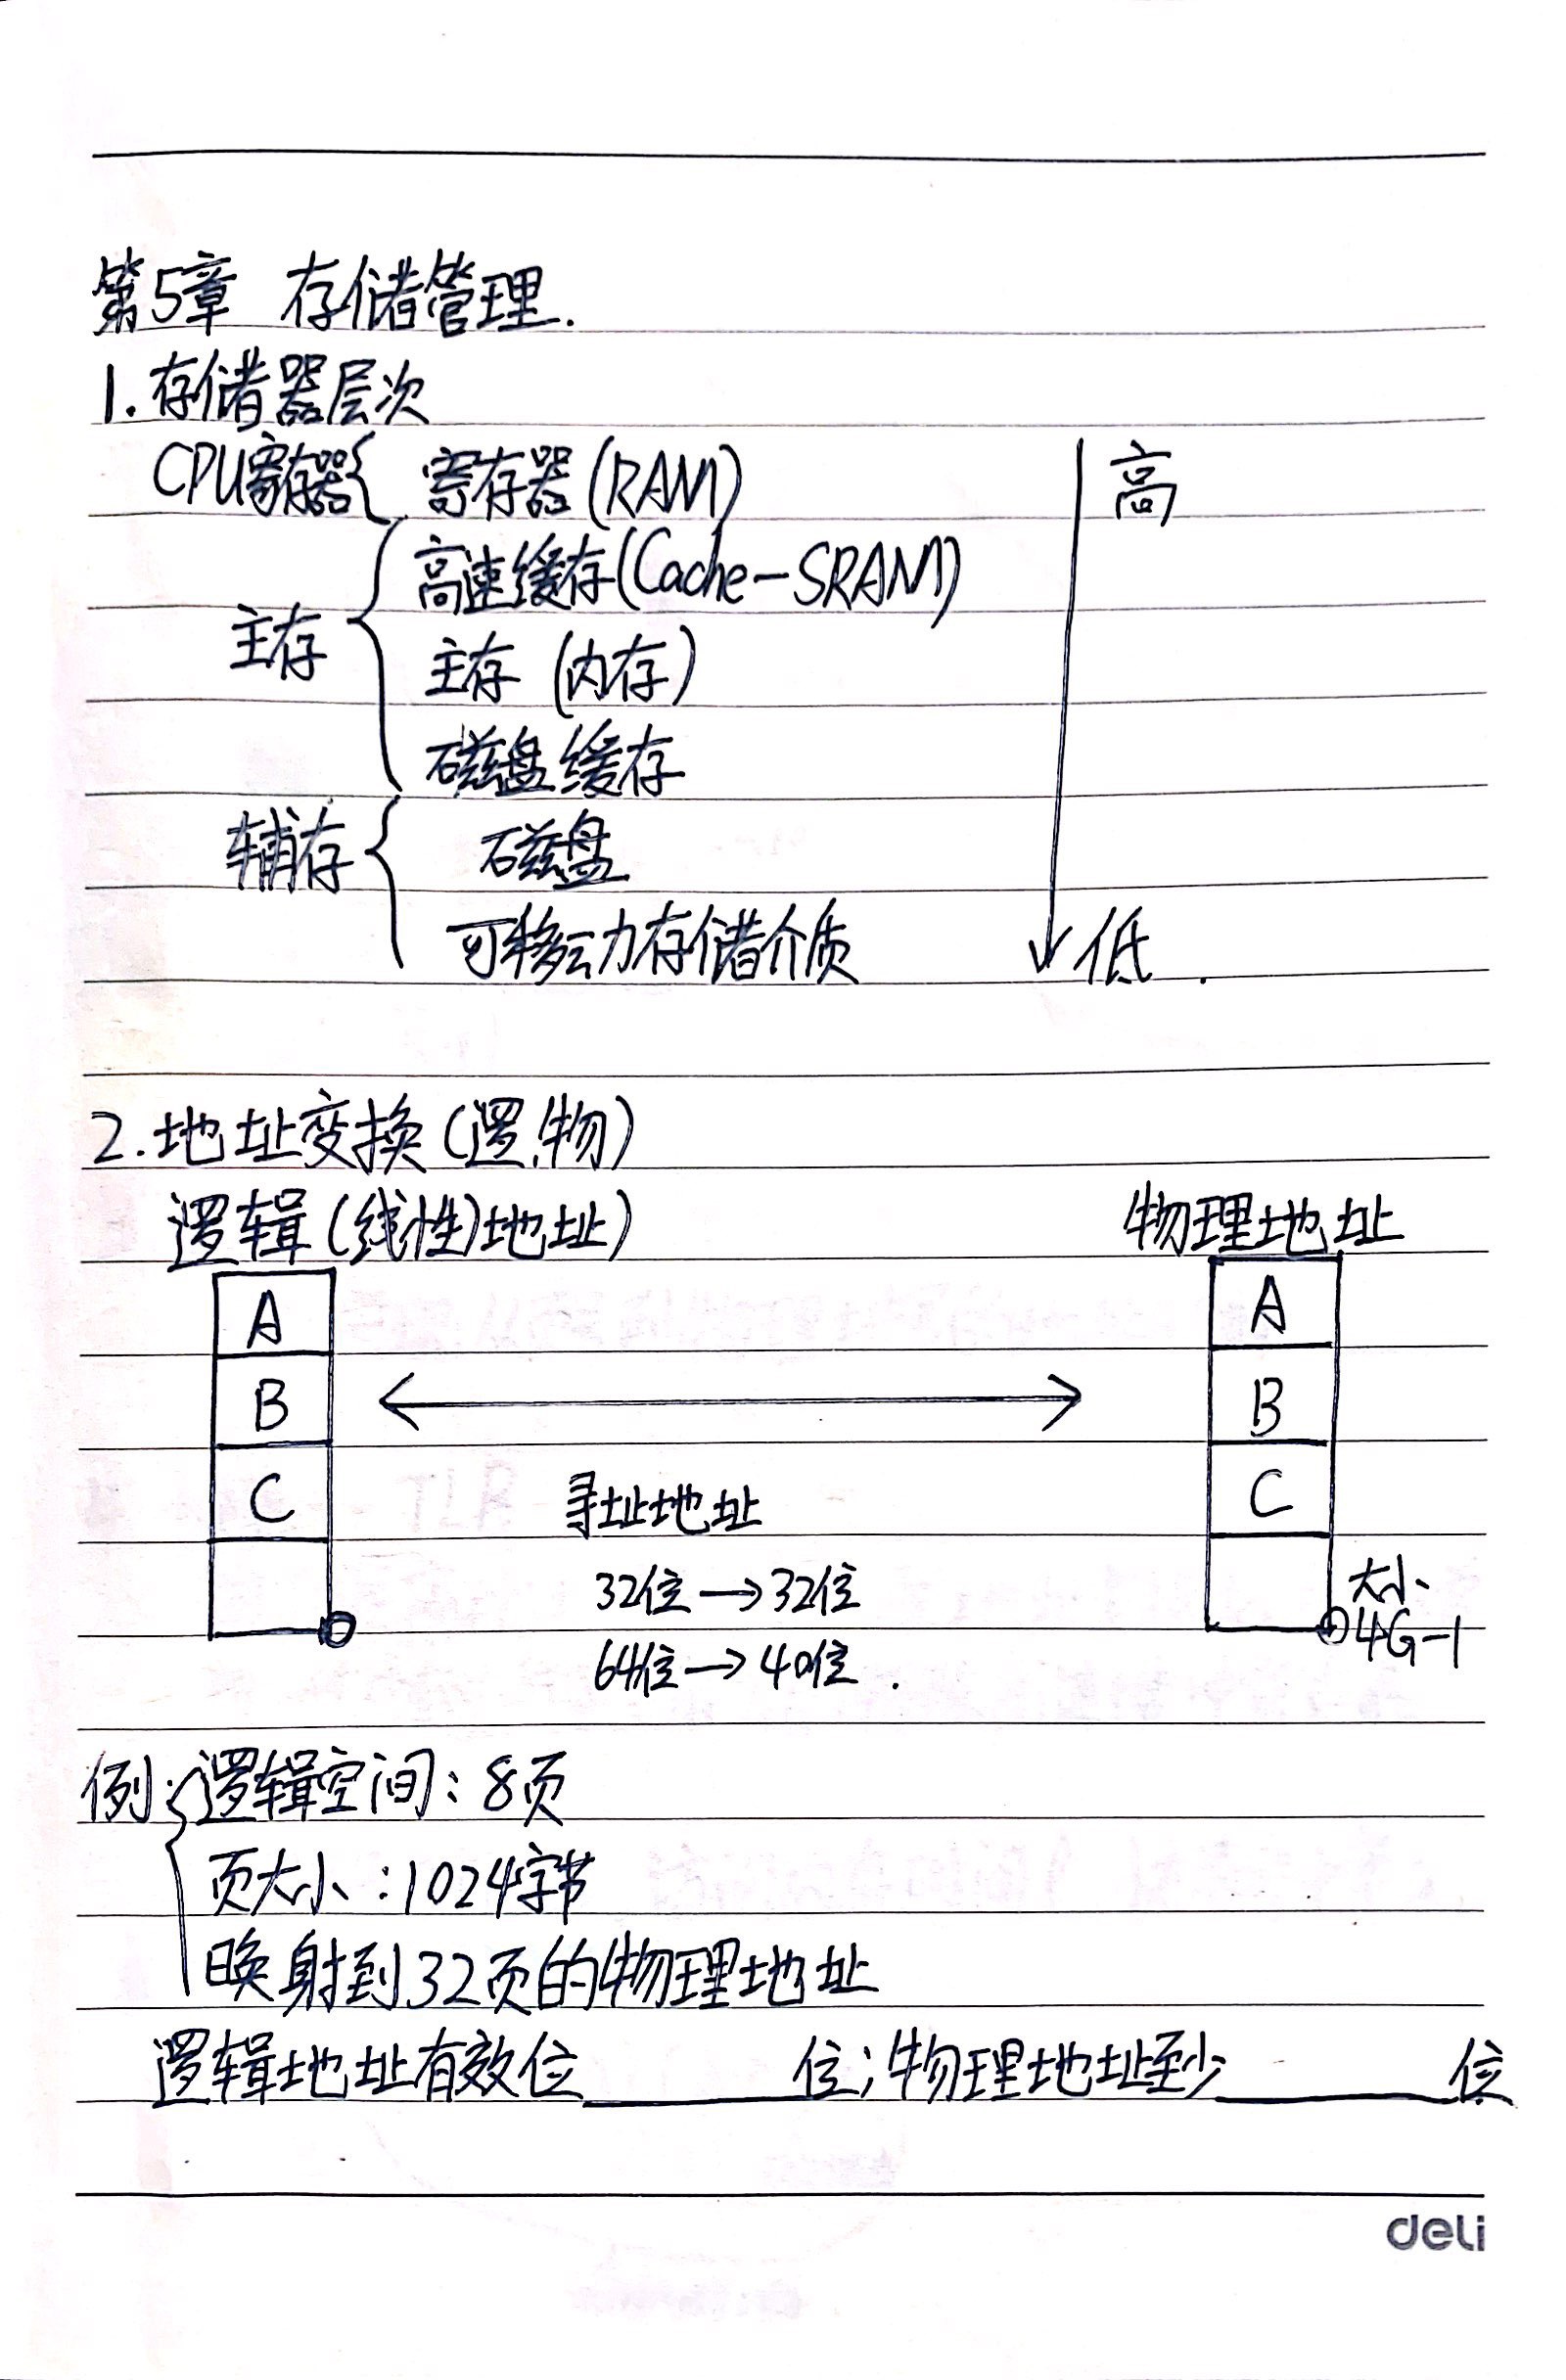 第5章 存储管理.
1.存储器层次
CPU寄存器{ 寄存器(RAM) 高
主存{ 高速缓存(Cache-SRAM)
主存(内存)
磁盘缓存
辅存{ 磁盘
可移动存储介质 低.
2.地址变换(逻,物)
逻辑(线性)地址) 物理地址
A A
B B
C C
寻址地址
32位→32位 大小
64位→40位. 4G-1
例:{逻辑空间:8页
页大小:1024字节
映射到32页的物理地址
逻辑地址有效位______位;物理地址至少______位
deli